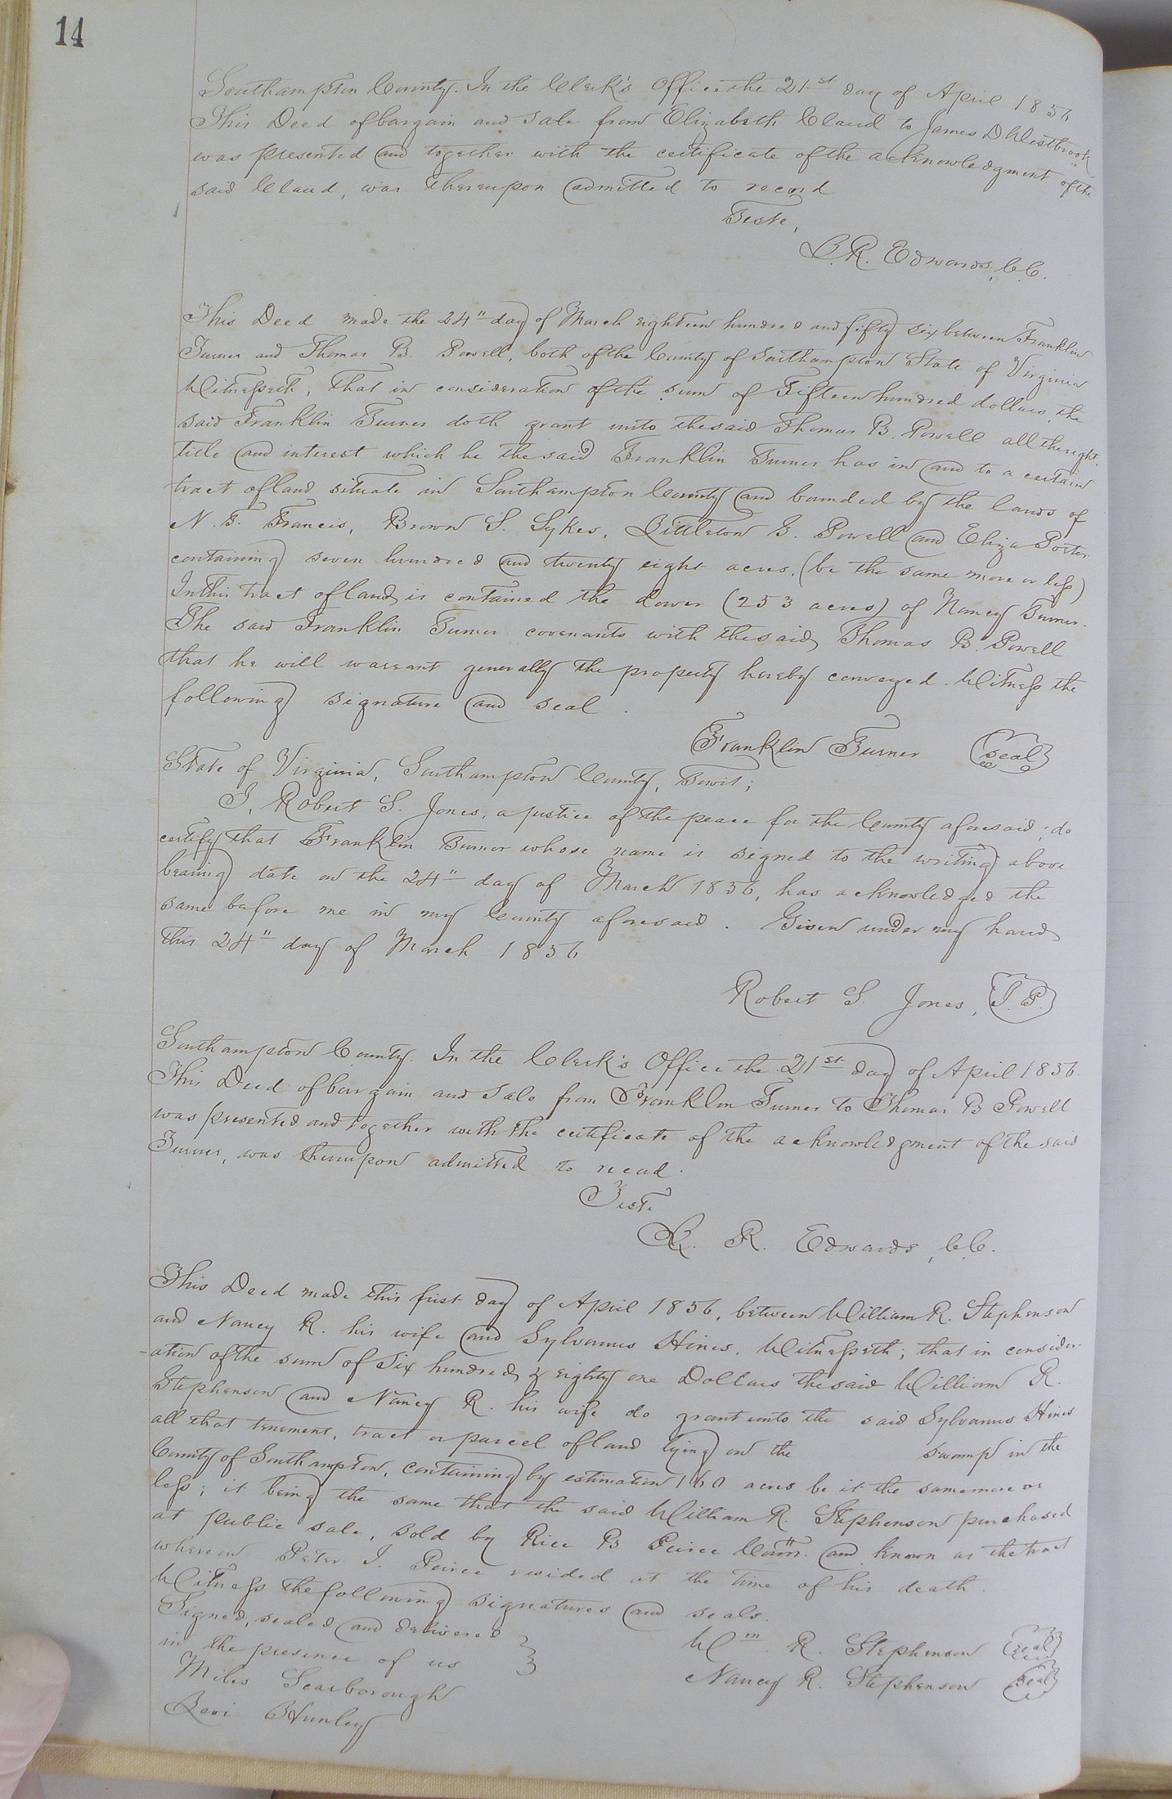 14
Southampton County. In the Clerk's Office the 21st day of April 1856
This Deed of bargain and sale from Elizabeth Claud to James D Westbrook
was presented and together with the certificate of the acknowledgment of the
said Claud, was thereupon admitted to record
Teste,
L. R. Edwards, C.C.
This Deed made the 24" day of March eighteen hundred and fifty six between Franklin
Turner and Thomas B. Powell, both of the County of Southampton State of Virginia
Witnesseth, that in consideration of the sum of Fifteen hundred dollars, the
said Franklin Turner doth grant unto the said Thomas B. Powell all the right,
title and interest which he the said Franklin Turner has in and to a certain
tract of land situate in Southampton County and bounded by the lands of
N. B. Francis, Brown S. Sykes, Littleton G. Powell and Eliza Porter
containing seven hundred and twenty eight acres, (be the same more or less)
In this tract of land, is contained the dower (253 acres) of Nancy Turner.
The said Franklin Turner covenants with the said Thomas B. Powell
that he will warrant generally the property hereby conveyed. Witness the
following signature and seal.
Franklin Turner (Seal)
State of Virginia, Southampton County, Towit;
I, Robert S. Jones, a justice of the peace for the County aforesaid, do
certify that Franklin Turner whose name is signed to the writing above
bearing date on the 24" day of March 1856, has acknowledged the
same before me in my County aforesaid. Given under my hand
this 24" day of March 1856
Robert S. Jones, J.P.
Southampton County. In the Clerk's Office the 21st day of April 1856.
This Deed of bargain and sale from Franklin Turner to Thomas B Powell
was presented and together with the certificate of the acknowledgment of the said
Turner, was thereupon admitted to record.
Teste
L. R. Edwards, C.C.
This Deed made this first day of April 1856, between William R. Stephenson
and Nancy R. his wife and Sylvanus Hines, Witnesseth; that in consider-
ation of the sum of Six hundred & eighty one Dollars the said William R.
Stephenson and Nancy R. his wife do grant unto the said Sylvanus Hines
all that tenement, tract or parcel of land lying on the swamp in the
County of Southampton, containing by estimation 160 acres be it the same more or
less; it being the same that the said William R. Stephenson purchased
at public sale, sold by Rice B Peirce Comr. and known as the tract
whereon Peter J. Peirce resided at the time of his death.
Witness the following signatures and seals.
Signed, sealed and delivered
in the presence of us
Wm R. Stephenson (Seal)
Nancy R. Stephenson (Seal)
Miles Scarborough
Levi B Hunley